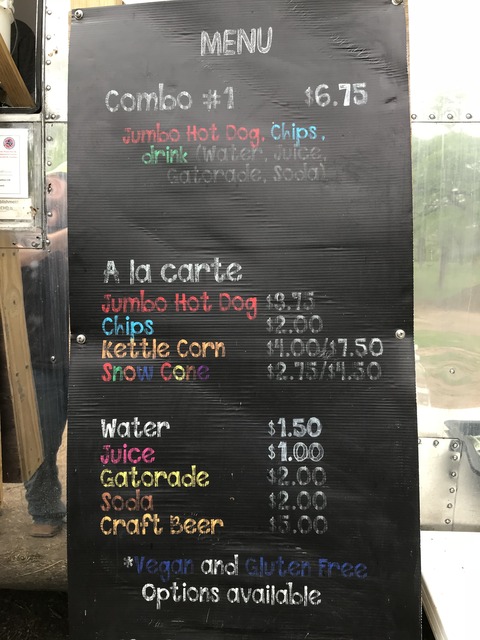 MENU
Combo #1 $6.75
Jumbo Hot Dog, Chips,
drink (Water, Juice,
Gatorade, Soda)
A la carte
Jumbo Hot Dog $3.75
Chips $2.00
Kettle Corn $4.00/$7.50
Snow Cone $2.75/$4.50
Water $1.50
Juice $1.00
Gatorade $2.00
Soda $2.00
Craft Beer $5.00
*Vegan and Gluten Free
Options available